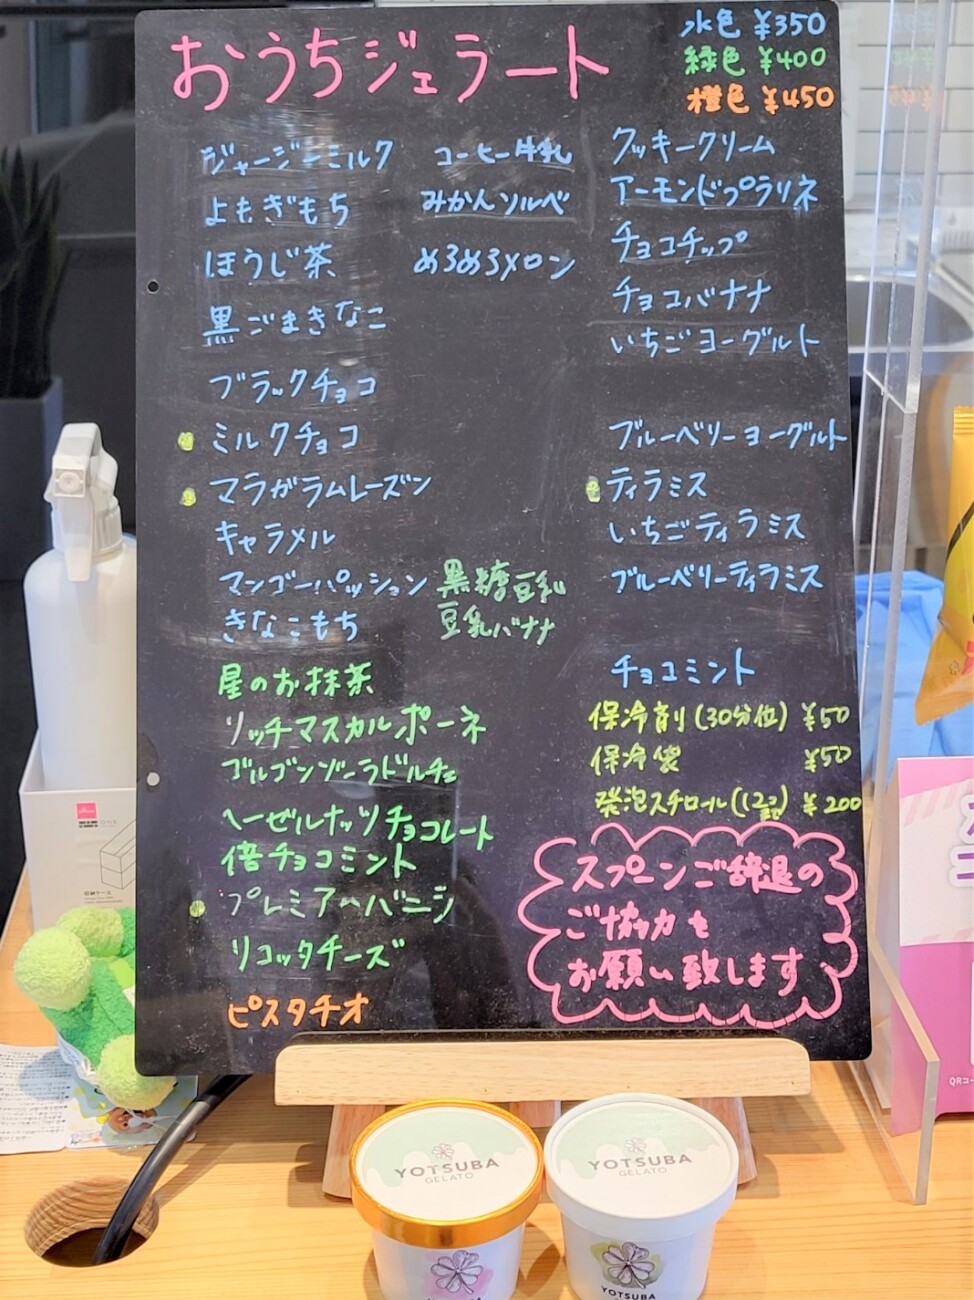 おうちジェラート
水色 ¥350
緑色 ¥400
橙色 ¥450
ジャージーミルク
よもぎもち
ほうじ茶
黒ごまきなこ
ブラックチョコ
ミルクチョコ
マラガラムレーズン
キャラメル
マンゴーパッション
きなこもち
星のお抹茶
リッチマスカルポーネ
ゴルゴンゾーラドルチェ
ヘーゼルナッツチョコレート
倍チョコミント
プレミアムバニラ
リコッタチーズ
ピスタチオ
コーヒー牛乳
みかんソルベ
めろめろメロン
黒糖豆乳
豆乳バナナ
クッキークリーム
アーモンドプラリネ
チョコチップ
チョコバナナ
いちごヨーグルト
ブルーベリーヨーグルト
ティラミス
いちごティラミス
ブルーベリーティラミス
チョコミント
保冷剤(30分位) ¥50
保冷袋 ¥50
発泡スチロール(12コ) ¥200
スプーンご辞退の
ご協力を
お願い致します
YOTSUBA
GELATO
YOTSUBA
GELATO
YOTSUBA